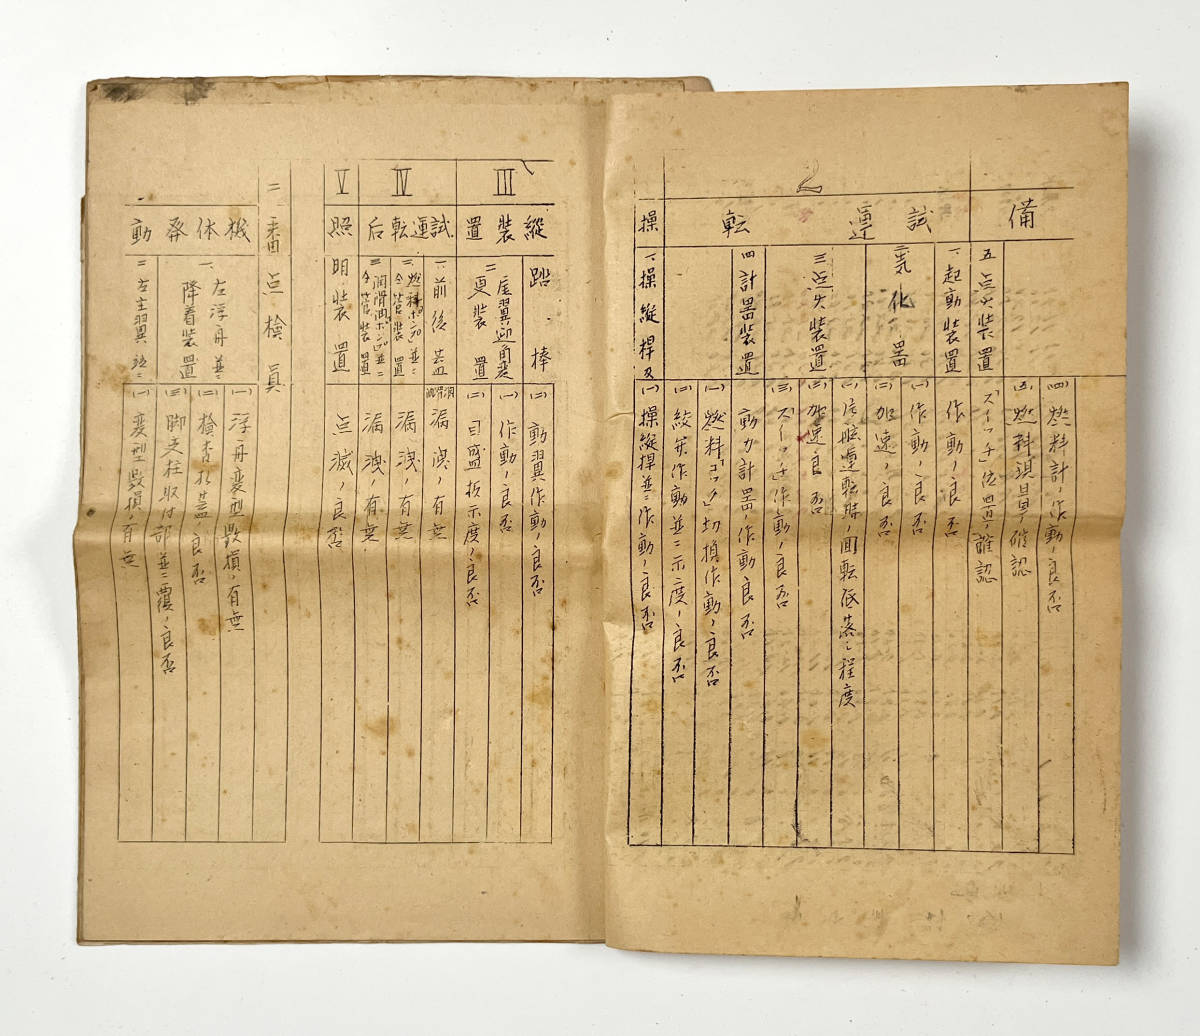 備
(四)燃料計ノ作動ノ良否
(五)燃料現量ノ確認
五点火装置
「スイッチ」位置ノ確認
2
試運転
一、起動装置
作動ノ良否
二気化器
(一)作動ノ良否
(二)加速ノ良否
三点火装置
(二)加速良否
(三)「スイッチ」作動ノ良否
四計器装置
動力計器ノ作動良否
(一)燃料「コック」切換作動ノ良否
(二)絞弁作動並ニ示度ノ良否
操
一、操縦桿及
(一)操縦桿並ニ作動ノ良否
III
縦装置
踏棒
(二)動翼作動ノ良否
二尾翼迎角変
更装置
(一)作動ノ良否
(二)目盛板示度ノ良否
IV
試運転后
一、前後蓋
漏洩ノ有無
二、燃料ポンプ並ニ
仝管装置
漏洩ノ有無
三潤滑油ポンプ並ニ
仝管装置
漏洩ノ有無
V
照
明装置
点滅ノ良否
二番点検員
機体発動
一、左浮舟並ニ
降着装置
(一)浮舟変型毀損ノ有無
(二)検査孔蓋ノ良否
(三)脚支柱取付部並ニ覆ノ良否
二左主翼並ニ
(一)変型毀損ノ有無